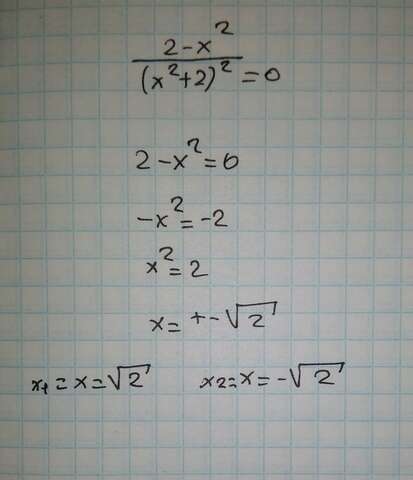 2-x²
(x²+2)² =0
2-x²=0
-x²=-2
x²=2
x=+-√2
x₁=x=√2 x₂=x=-√2